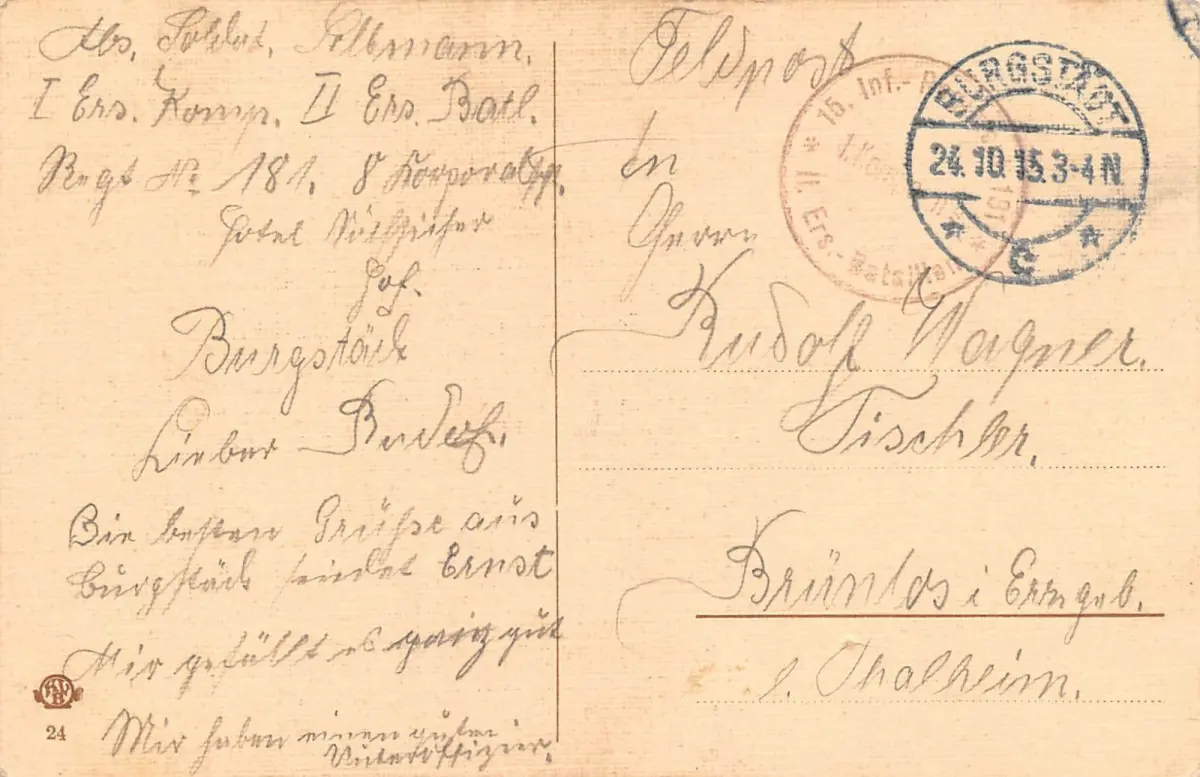 Abs. Soldat. Selbmann.
I Ers. Komp. II Ers. Batl.
Regt № 181. 8 Korporalsch.
Hotel
Hof.
Burgstädt
Lieber Rudolf.
Die besten Grüße aus
Burgstädt sendet Ernst
Mir gefällt es ganz gut
Wir haben einen guten
Unteroffizier.
24
Feldpost
An
Herrn
Rudolf Wagner.
Tischler.
Brünlos i Erzgeb.
b. Thalheim.
15. Inf.- 181
1. Komp.
* II. Ers.-Bataillon *
BURGSTÄDT
24.10.15.3-4N
* C *